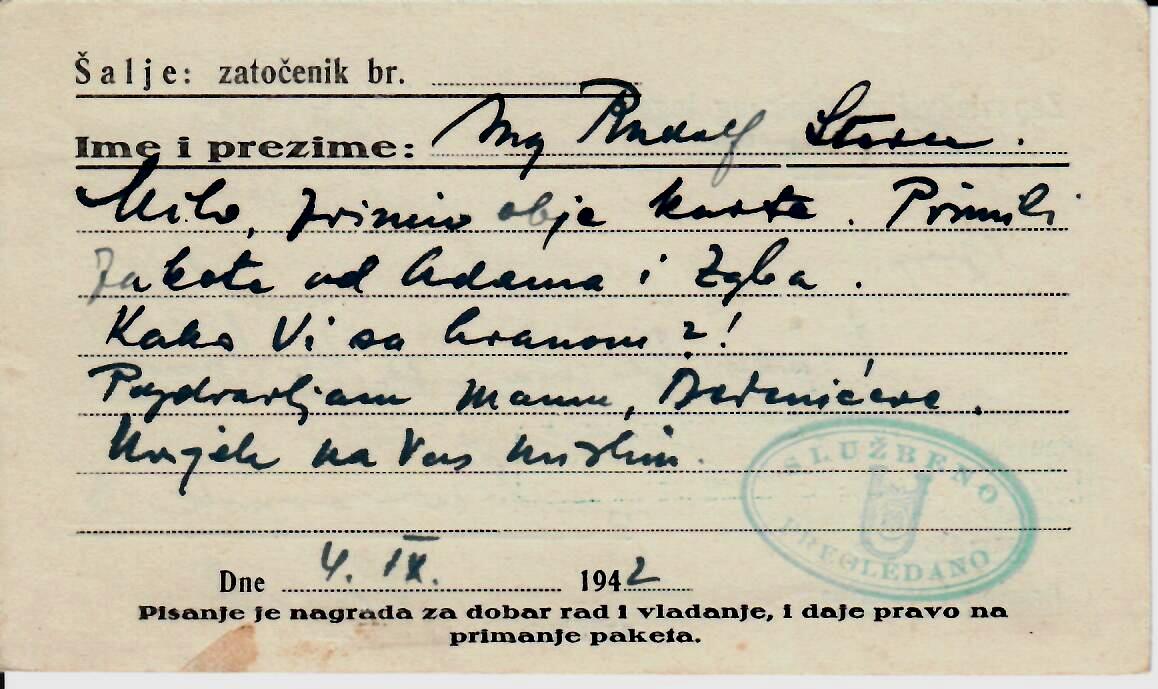 Šalje: zatočenik br.
Ime i prezime: Ing Rudolf
Milo, primio obje karte. Primili
pakete od Adama i Zgba.
Kako Vi sa hranom?!
Pozdravljam mamu,
Uvijek na Vas mislim.
SLUŽBENO
PREGLEDANO
Dne 4. IX. 1942
Pisanje je nagrada za dobar rad i vladanje, i daje pravo na
primanje paketa.